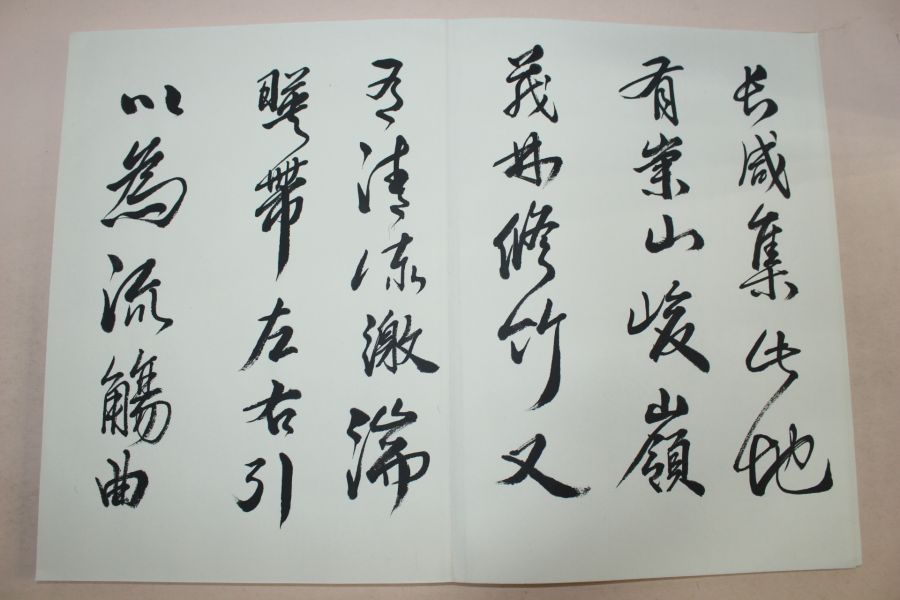 长咸集此地
有崇山峻嶺
茂林修竹又
有清流激湍
暎帶左右引
以為流觴曲